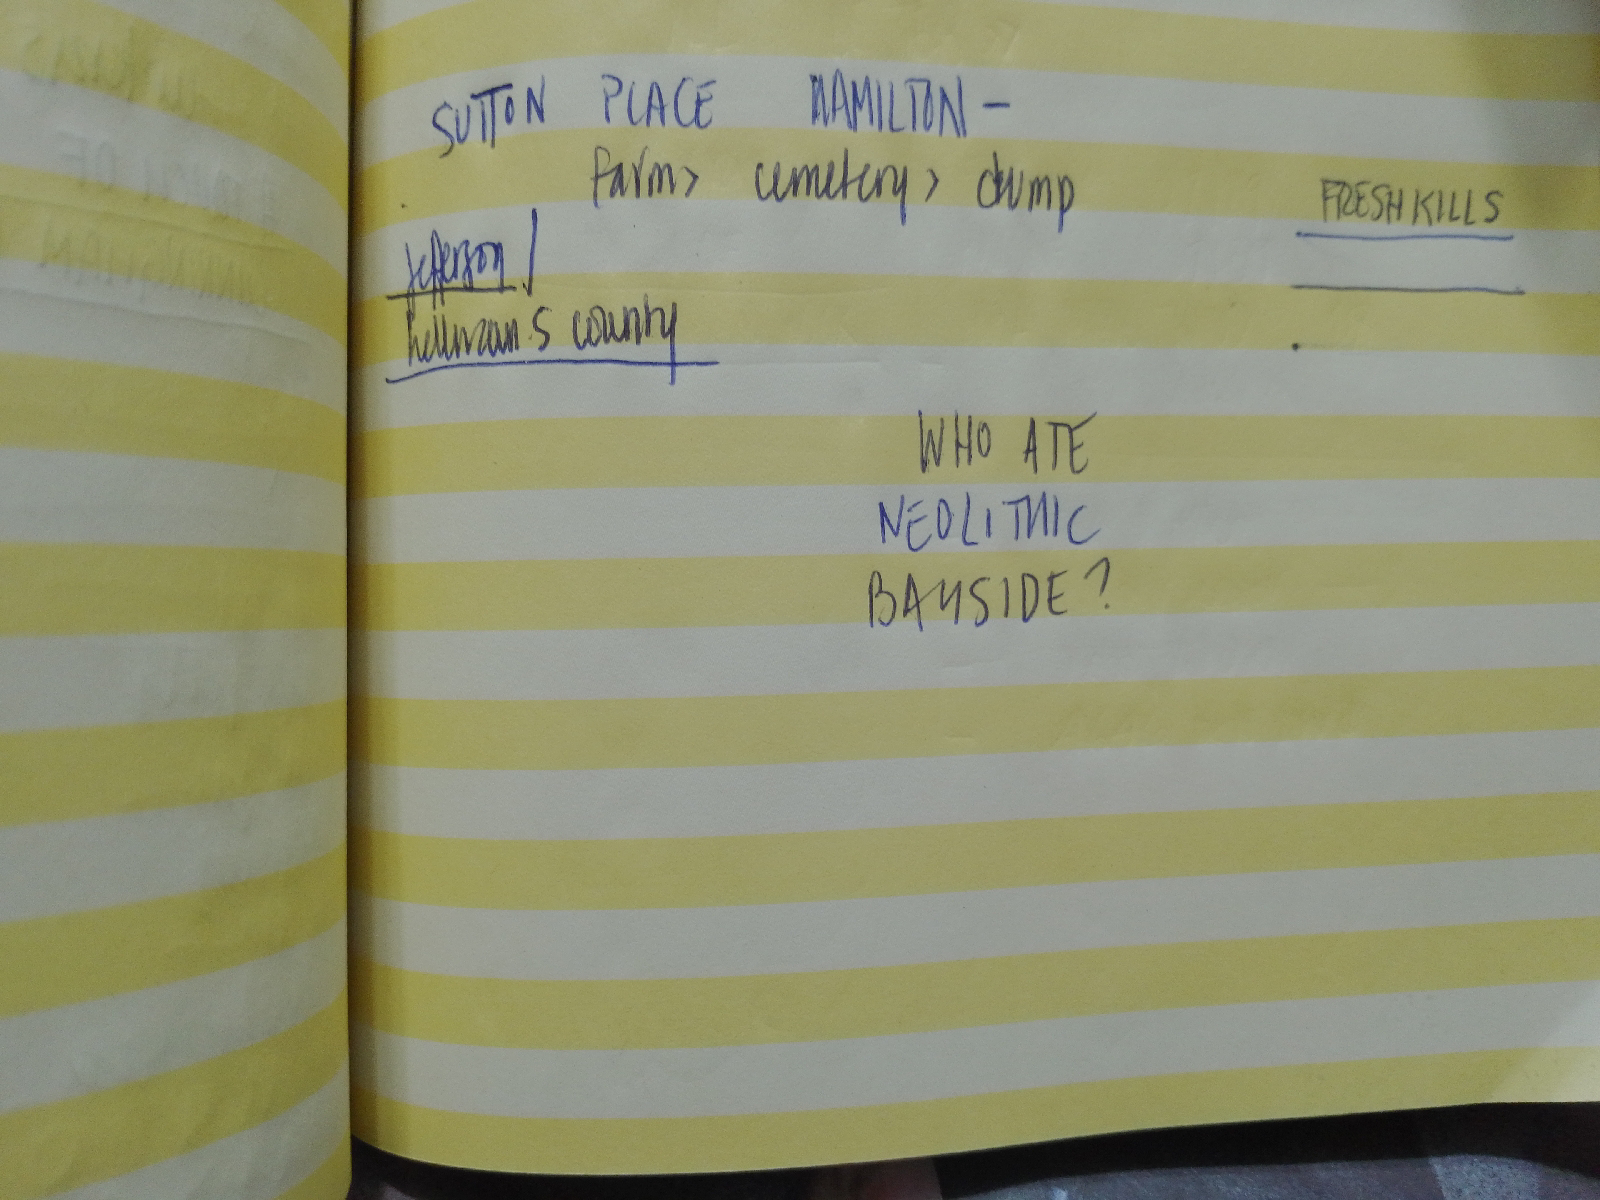 SUTTON PLACE HAMILTON –
farm> cemetery> dump
FRESH KILLS
Jefferson/
county
WHO ATE
NEOLITHIC
BAYSIDE?